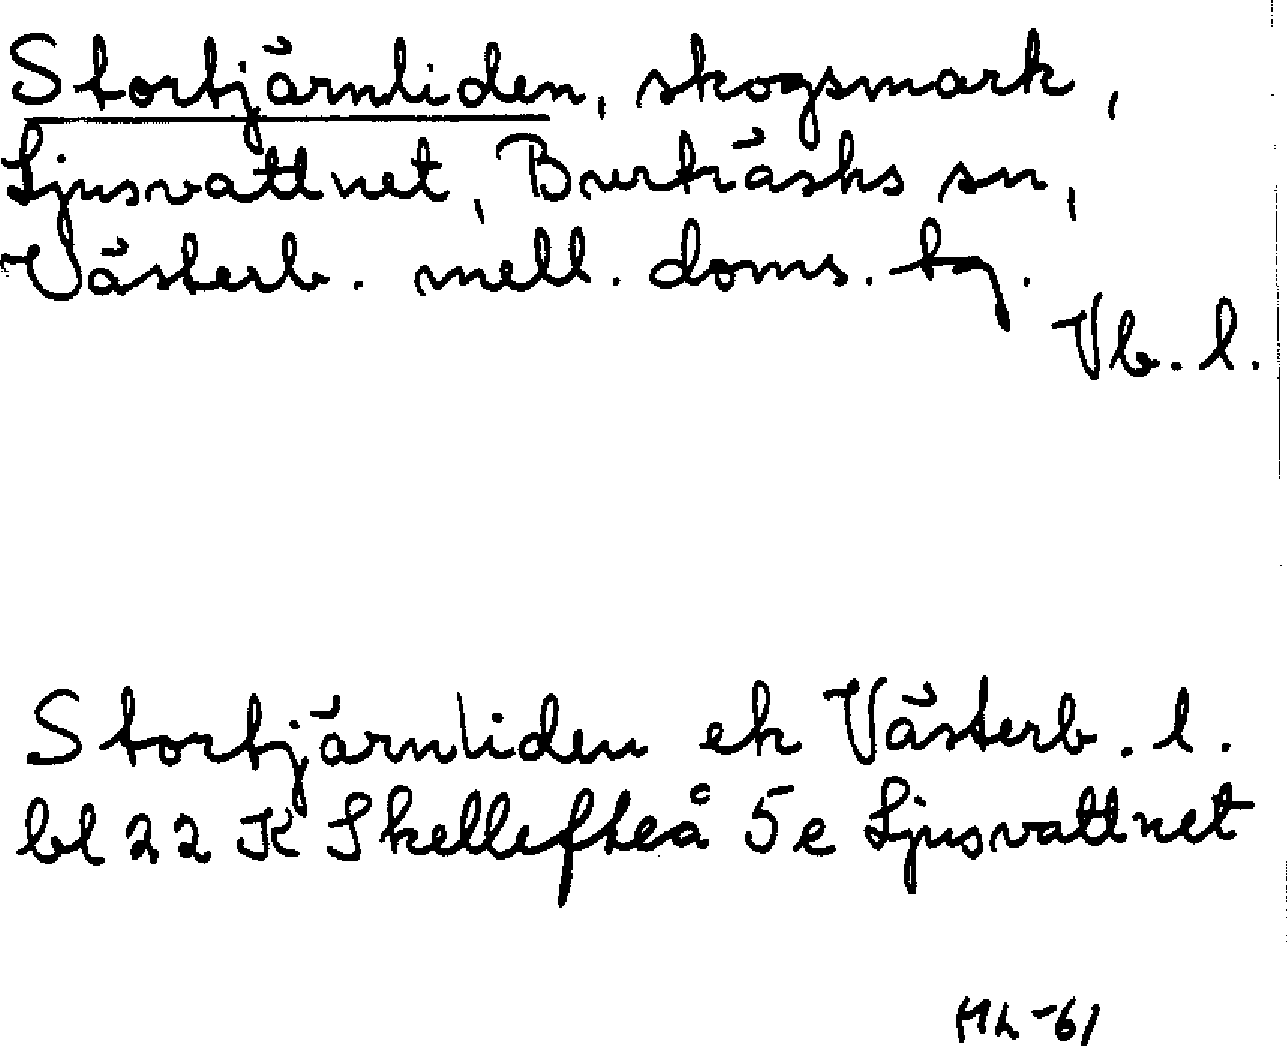 Stortjärnliden, skogsmark,
Ljusvattnet, Burträsks sn,
Västerb. mell. doms. tg.
Vb. l.
Stortjärnliden ek Västerb. l.
bl 22 K Skellefteå 5e Ljusvattnet
HL -61